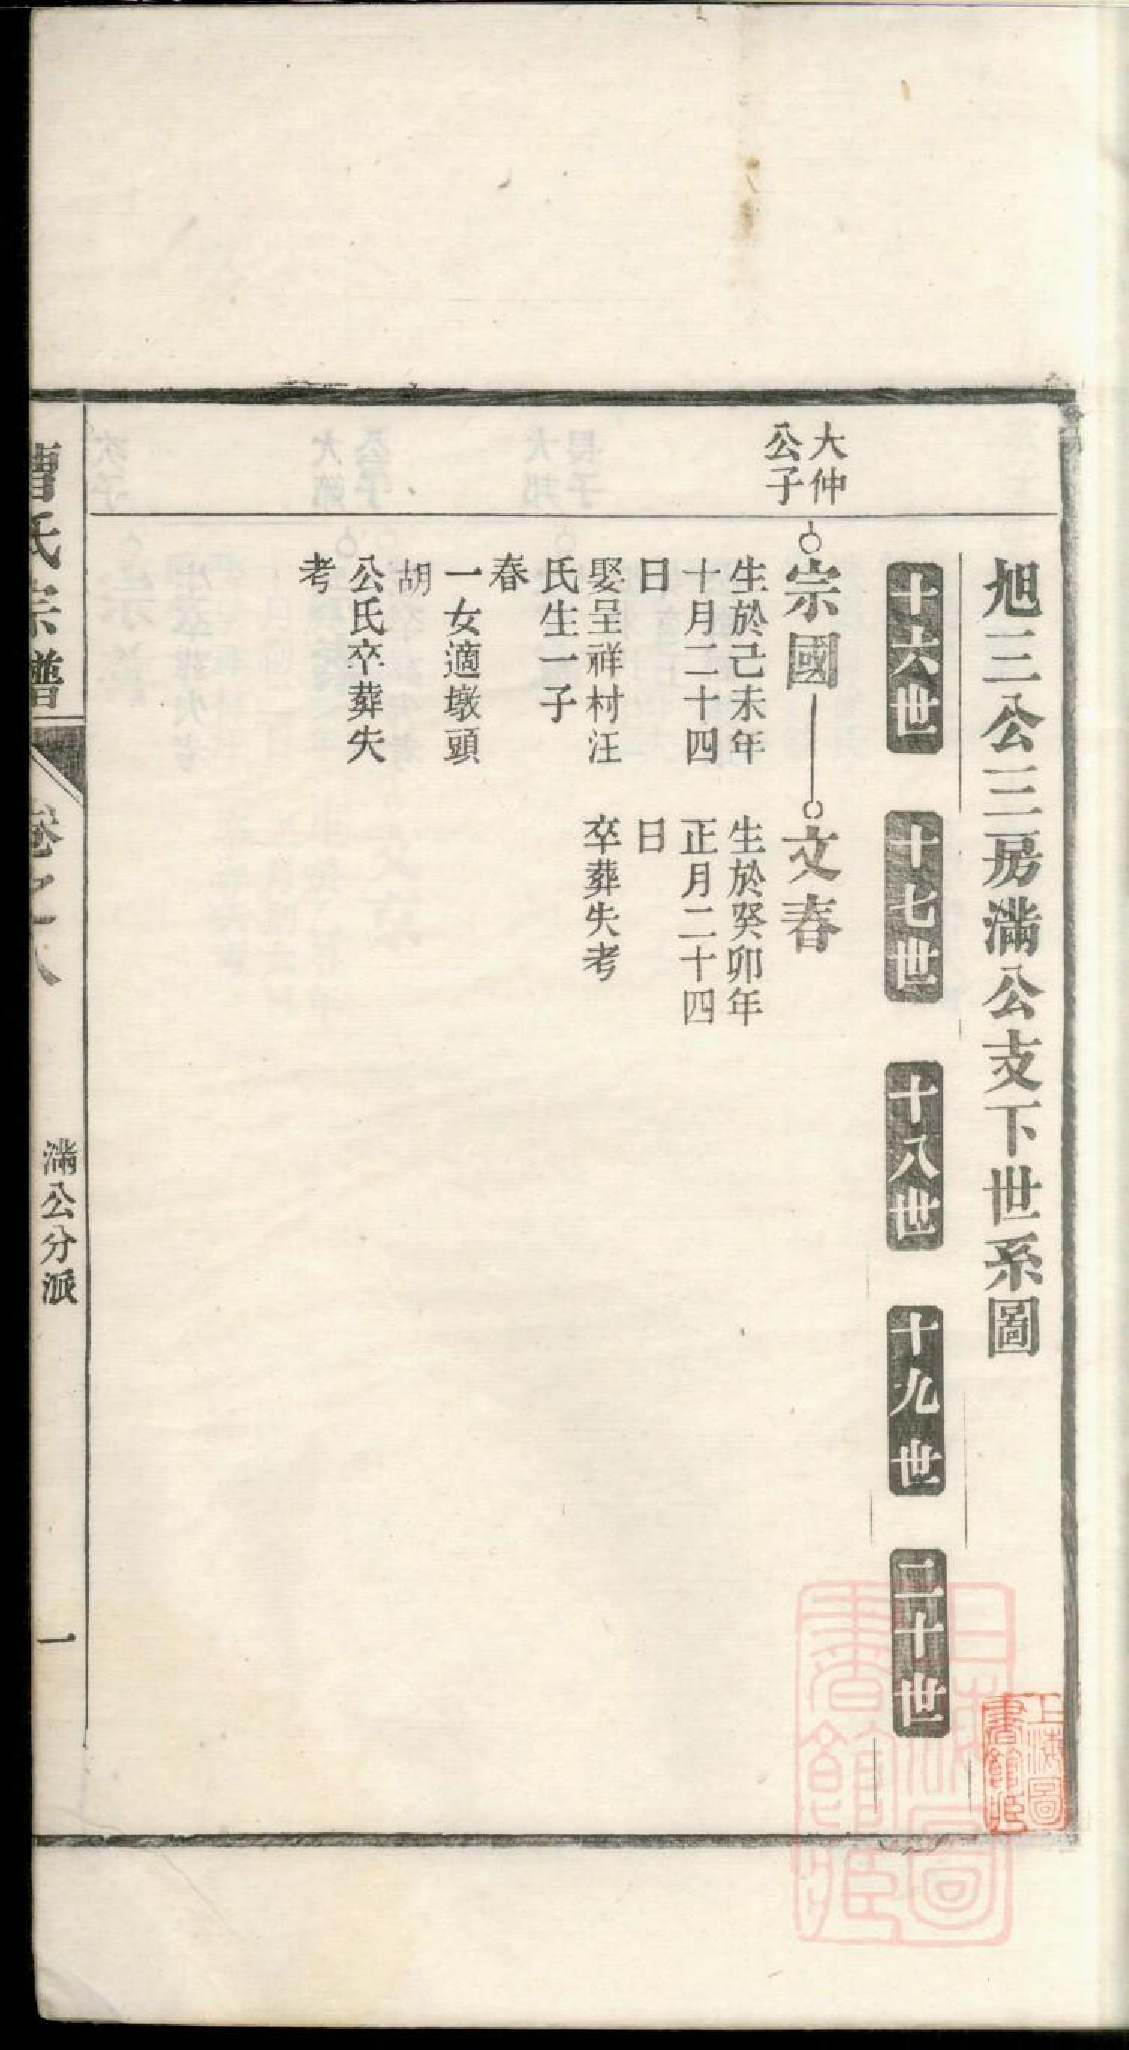 旭三公三房滿公支下世系圖
十六世
十七世
十八世
十九世
二十世
大仲
公子
宗國
生於己未年
十月二十四
日
娶呈祥村汪
氏生一子
春
一女適墩頭
胡
公氏卒葬失
考
文春
生於癸卯年
正月二十四
日
卒葬失考
曹氏宗譜
卷之八
滿公分派
一
上海圖
書館藏
上海圖
書館藏